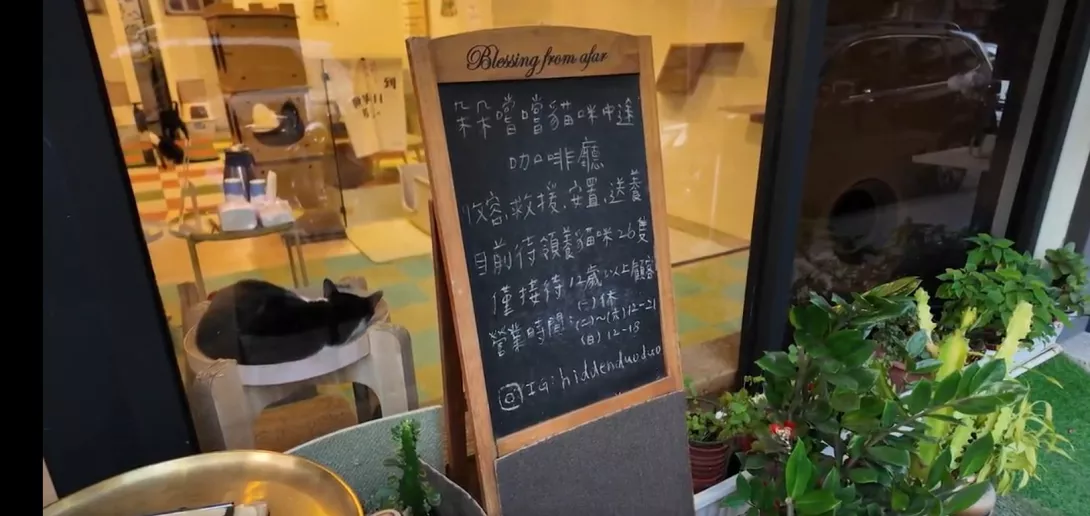 Blessing from afar
朵朵噹噹貓咪中途
咖啡廳
收容.救援.安置.送養
目前待領養貓咪26隻
僅接待12歲以上顧客
營業時間:(一)休
(二)~(六)12-21
(日)12-18
IG:hiddenduoduo
到